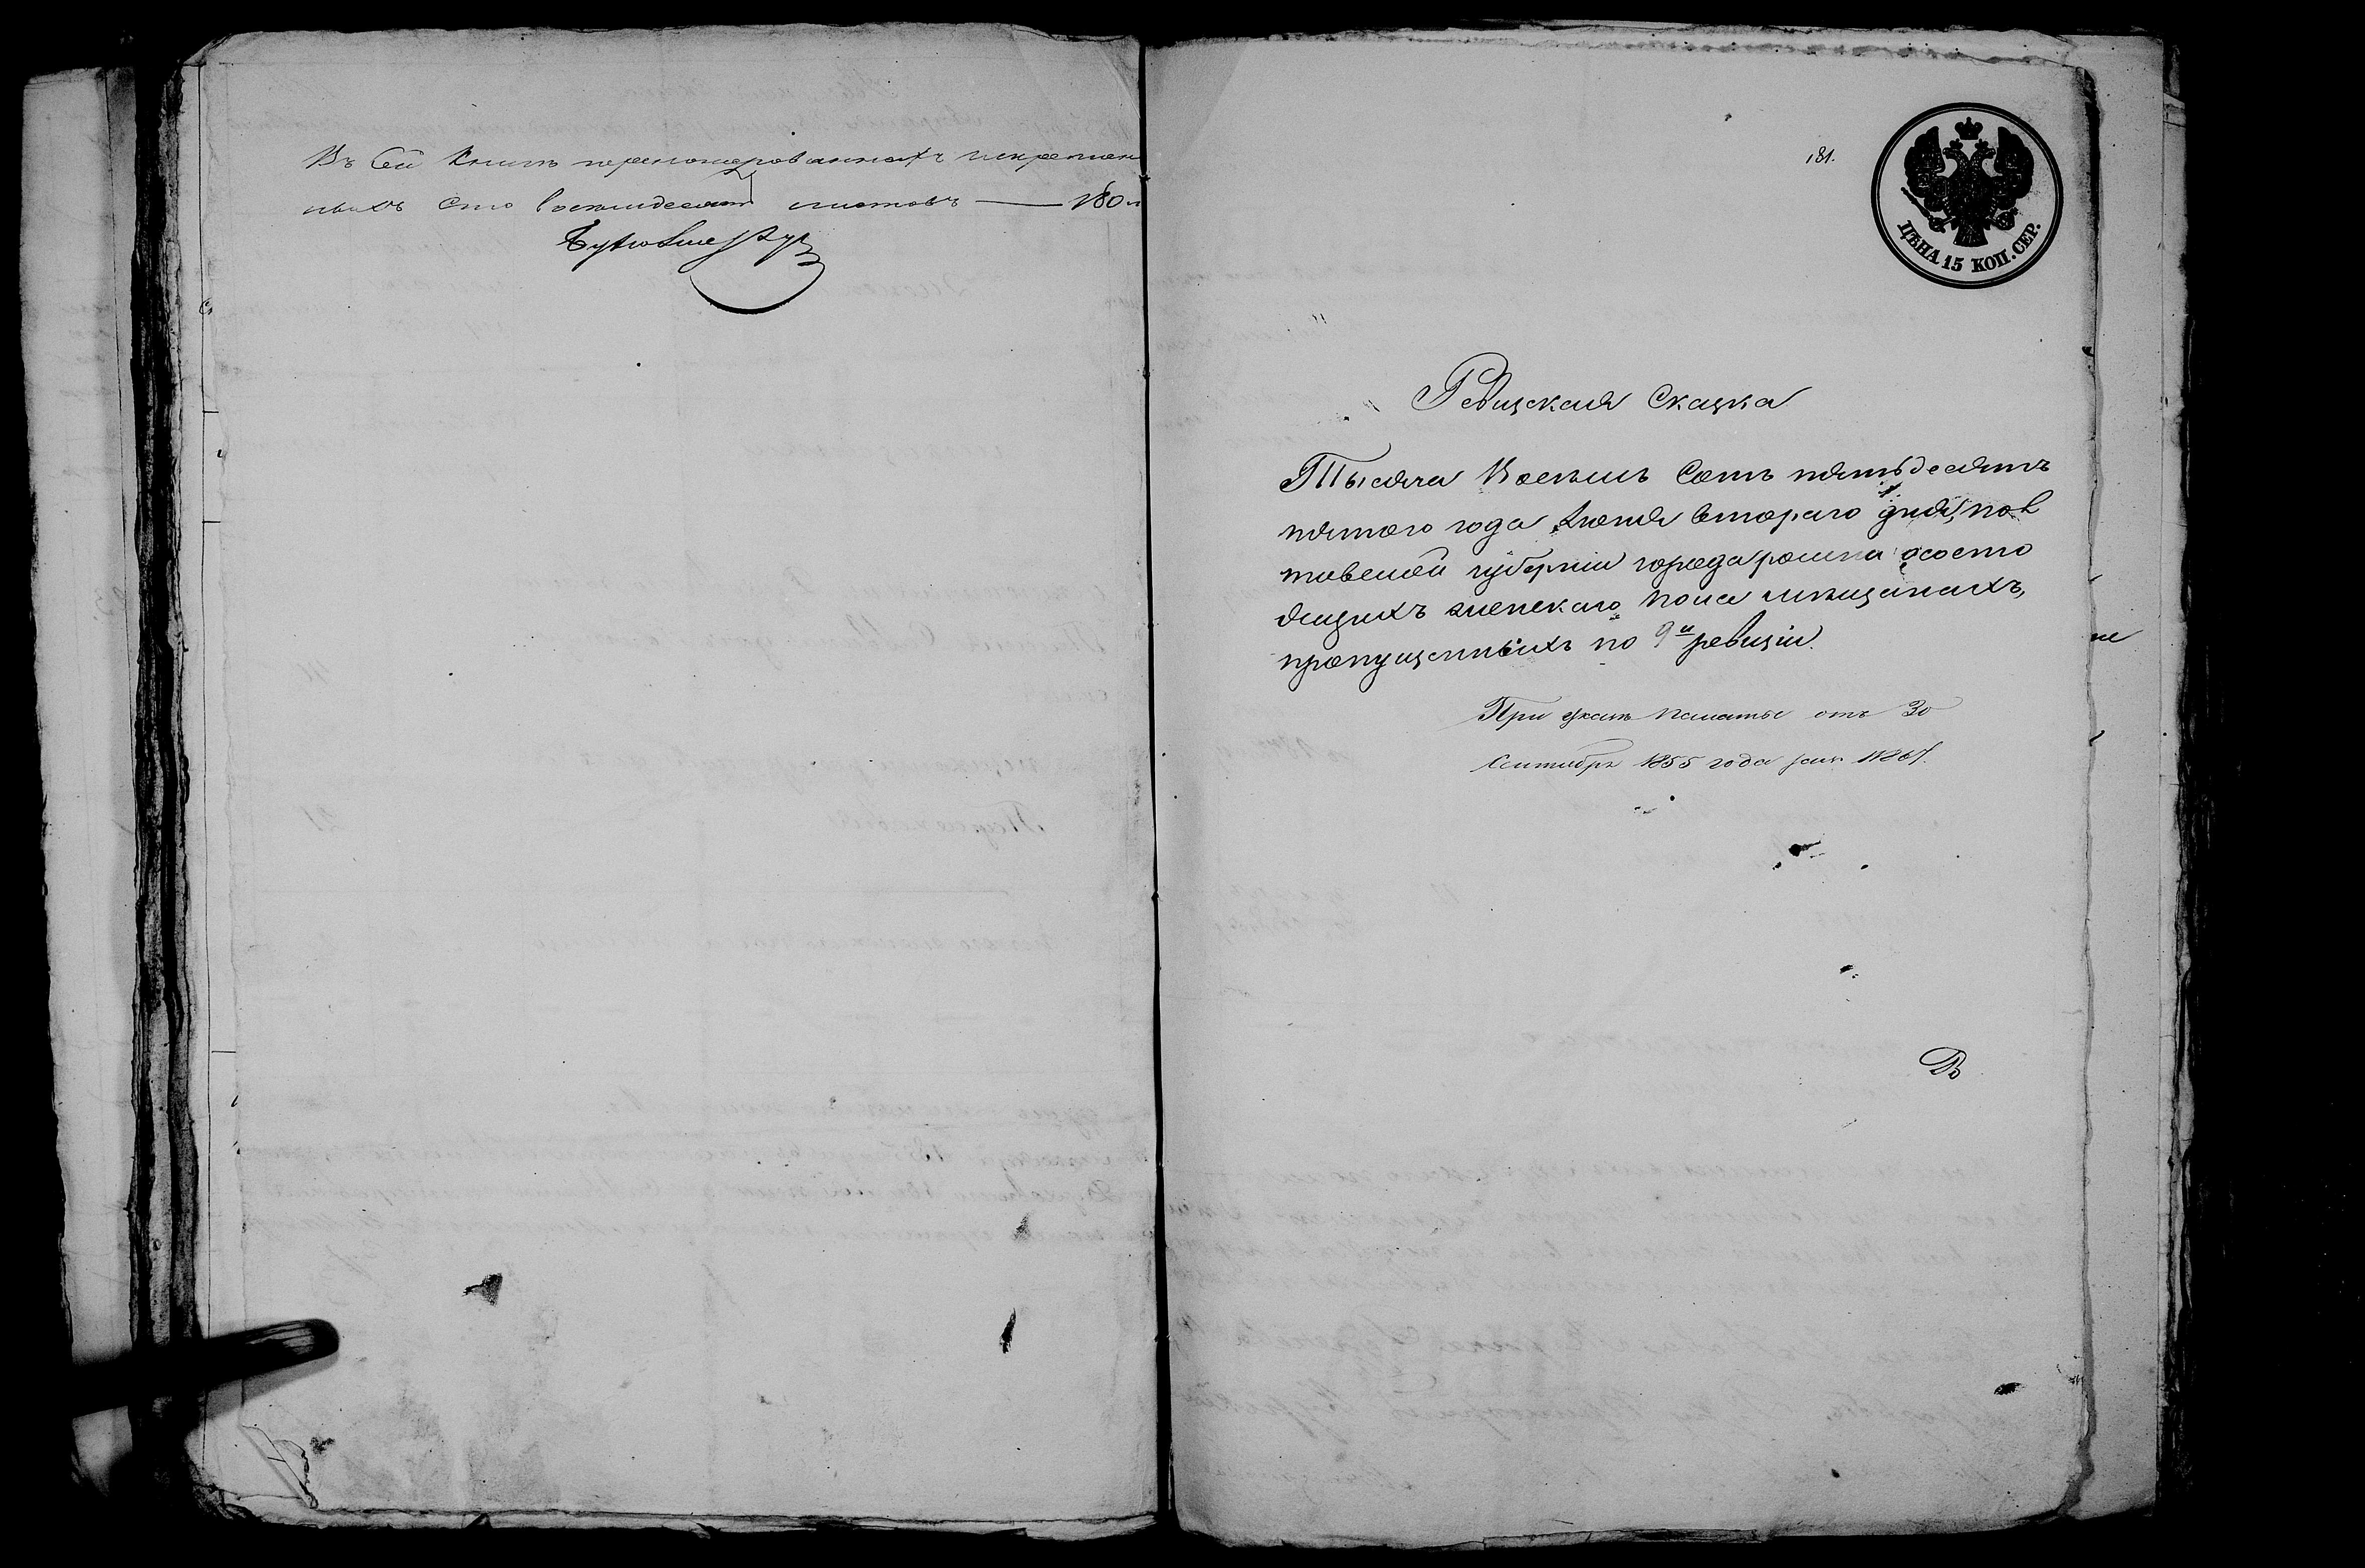 Въ сей книгѣ перенумерованныхъ и скреплен
ныхъ сто восемьдесятъ листовъ — 180 л
181.
ЦѢНА 15 КОП. СЕР.
Ревизская Сказка
Тысяча Восемь Сотъ пятьдесятъ
пятого года Іюня втораго дня, пол
тавской губерніи города ромна о состо
ящихъ женскаго пола мѣщанахъ,
пропущенныхъ по 9й ревизіи.
При указѣ палаты отъ 30
Сентября 1855 года за №
В